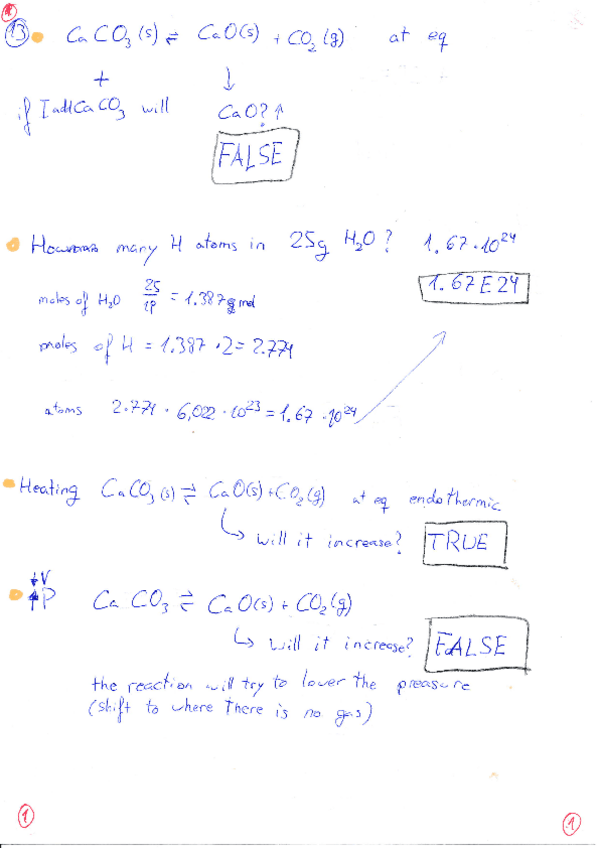 1
13 CaCO3(s) ⇌ CaO(s) + CO2(g) at eq
+ ↓
if I add CaCO3 will CaO? ↑
FALSE
many H atoms in 25g H2O? 1.67·10^24
1.67E24
moles of H2O 25/18 = 1.387 mol
moles of H = 1.387 · 2 = 2.774
atoms 2.774 · 6,022 · 10^23 = 1.67 · 10^24
Heating CaCO3(s) ⇌ CaO(s)+CO2(g) at eq endothermic
↳ will it increase? TRUE
↓V
↑P CaCO3 ⇌ CaO(s) + CO2(g)
↳ will it increase? FALSE
the reaction will try to lower the preasure
(shift to where there is no gas)
1 1